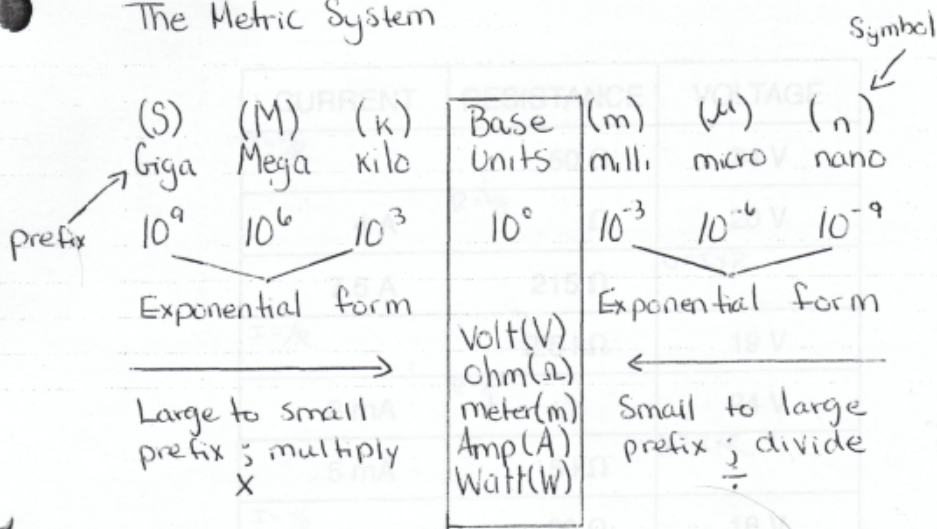 The Metric System
Symbol
(S) (M) (K) Base (m) (μ) (n)
Giga Mega Kilo Units milli micro nano
prefix
10⁹ 10⁶ 10³ 10⁰ 10⁻³ 10⁻⁶ 10⁻⁹
Exponential form
Exponential form
Volt(V)
Ohm(Ω)
meter(m)
Amp(A)
Watt(W)
Large to small
prefix ; multiply
X
Small to large
prefix ; divide
÷
CURRENT RESISTANCE VOLTAGE
215 Ω
19 V
18 V